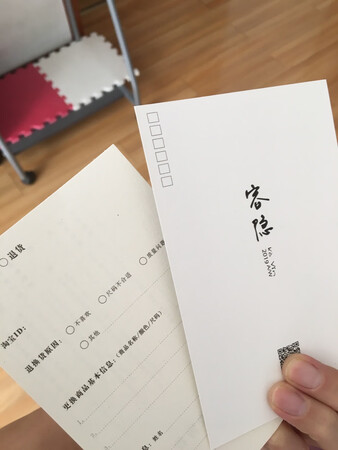 容隐
2019 NEW
退货
淘宝ID:
退换货原因:
不喜欢
尺码不合适
质量问题
其他
更换商品基本信息:(商品名称/颜色/尺码)
1、
2、
姓名